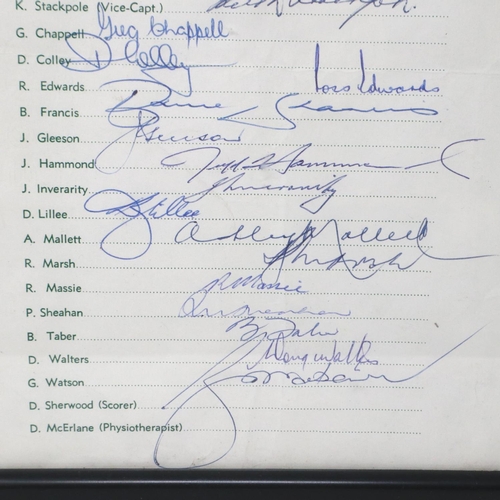 K. Stackpole (Vice-Capt.)
G. Chappell Greg Chappell
D. Colley D Colley
R. Edwards Ross Edwards
B. Francis
J. Gleeson J Gleeson
J. Hammond Jeff Hammond
J. Inverarity J Inverarity
D. Lillee D Lillee
A. Mallett Ashley Mallett
R. Marsh R Marsh
R. Massie R Massie
P. Sheahan
B. Taber B Taber
D. Walters Doug Walters
G. Watson
D. Sherwood (Scorer)
D. McErlane (Physiotherapist)